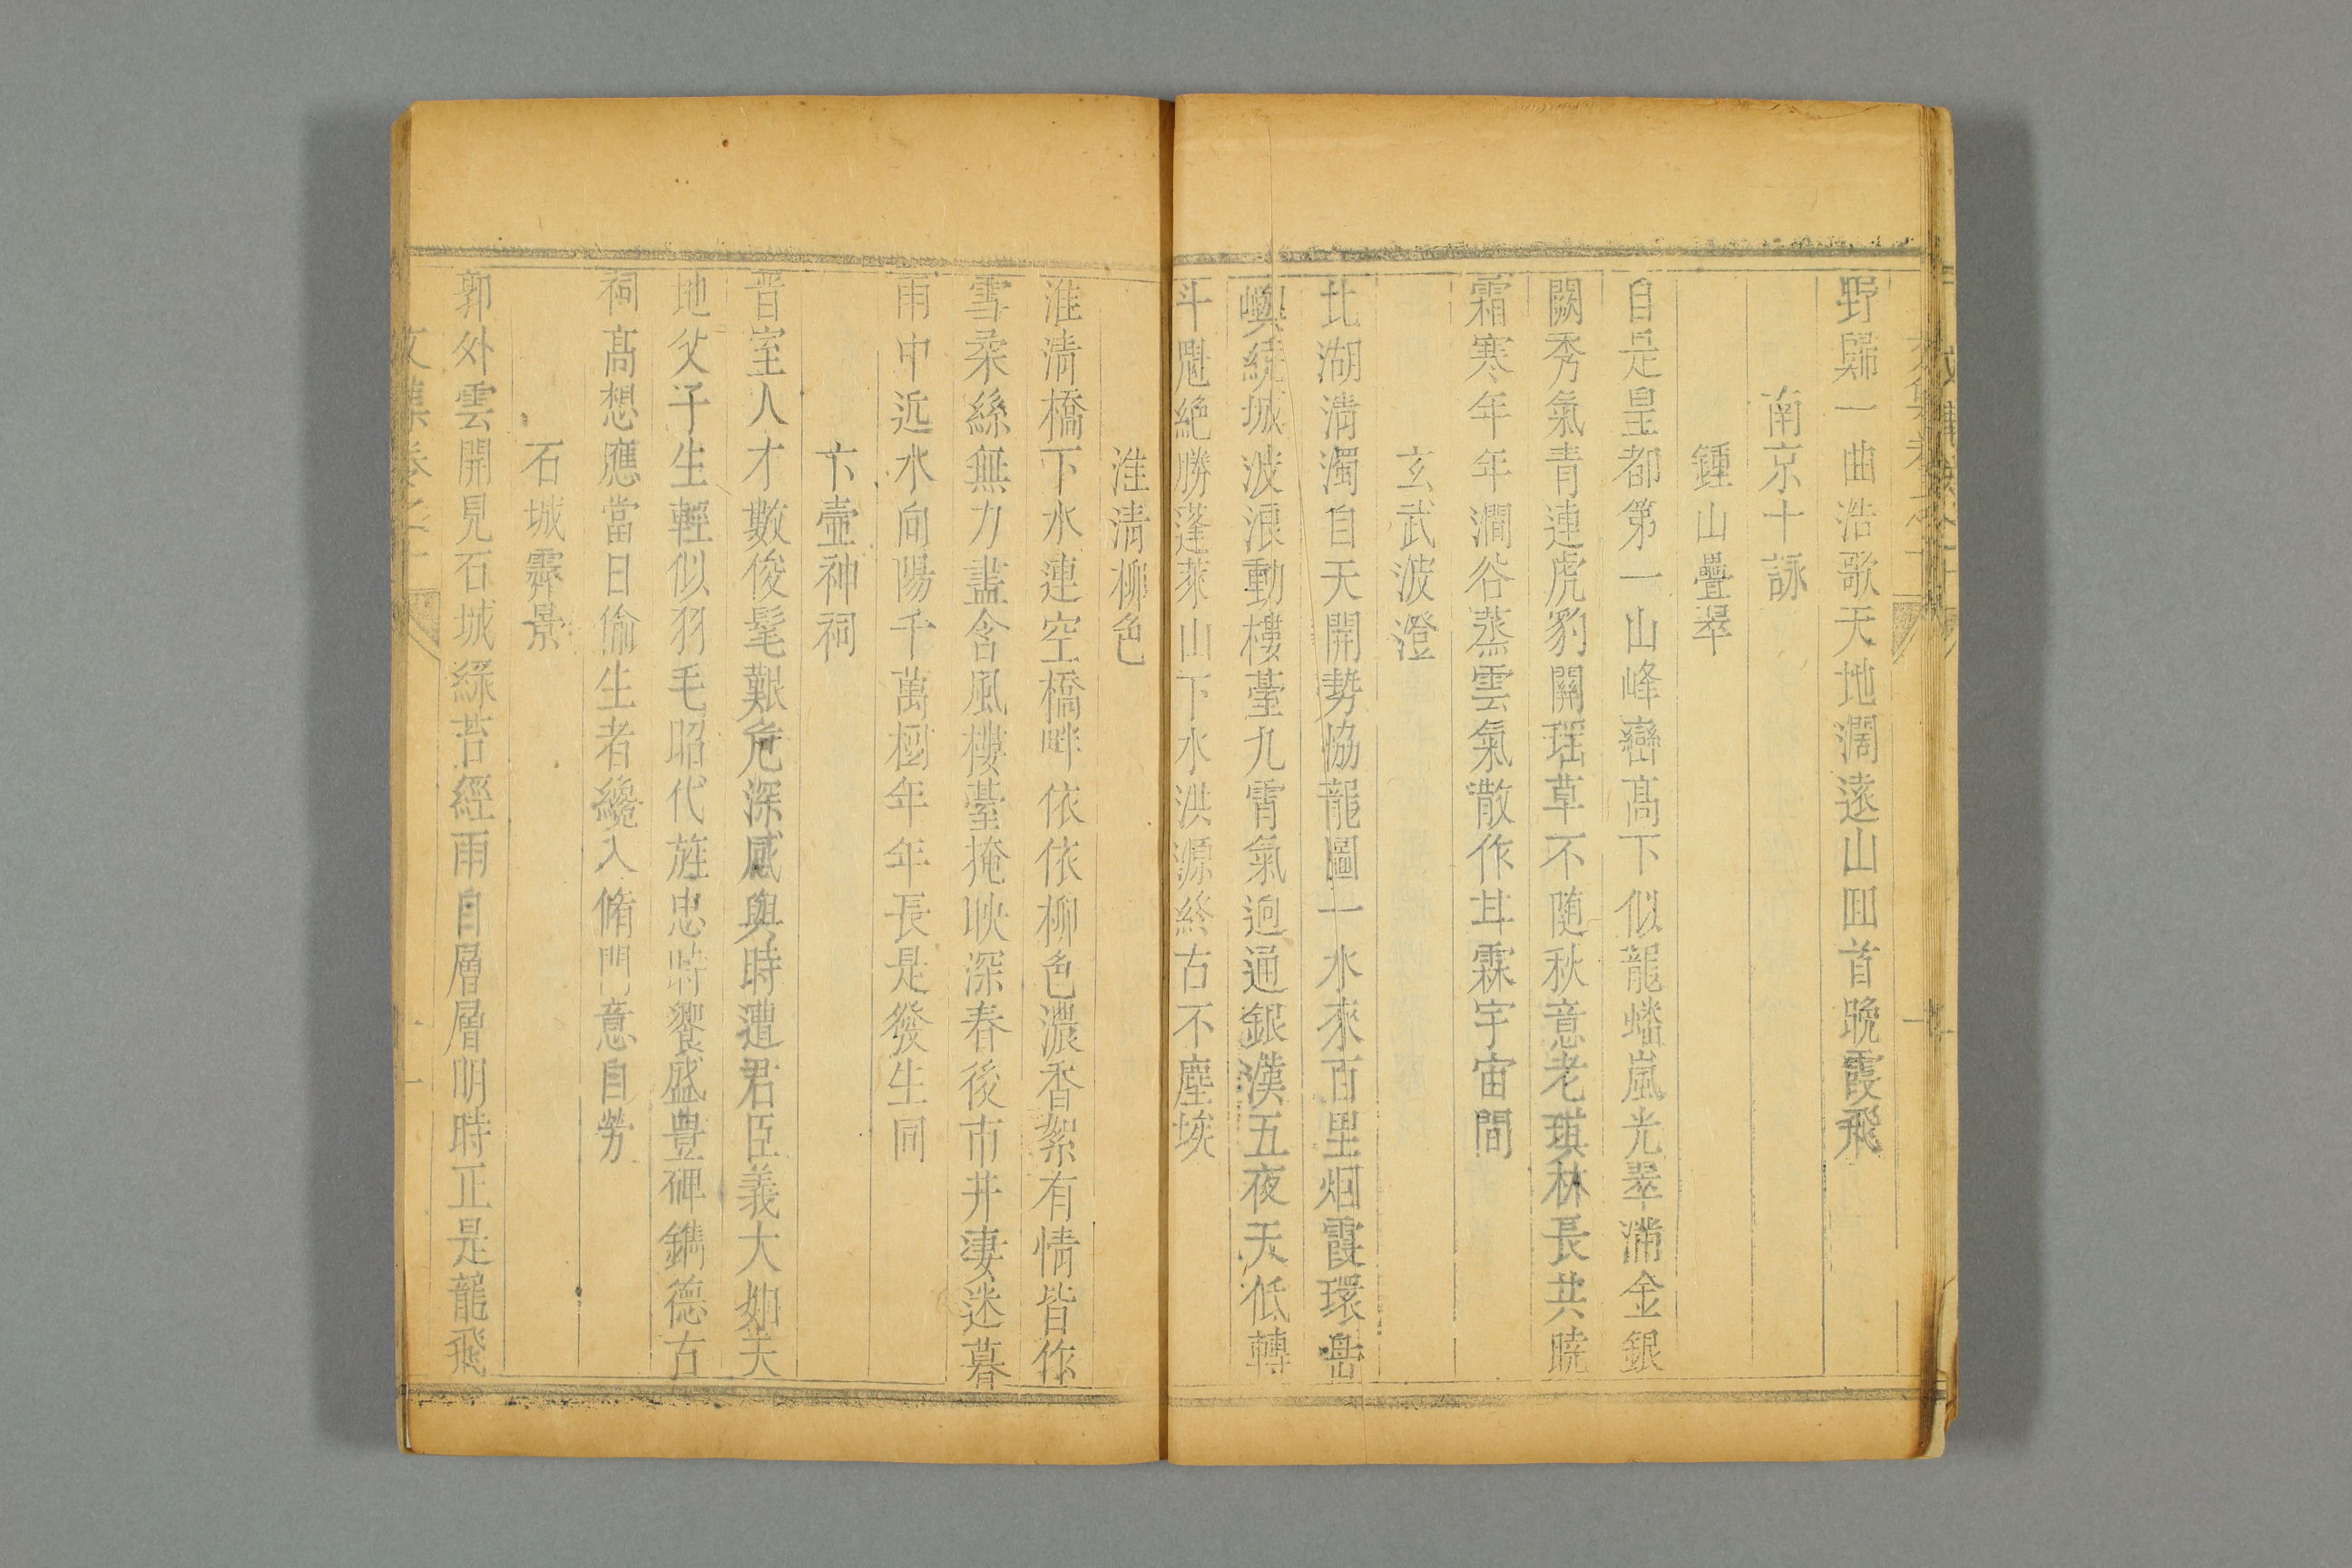 野歸一曲浩歌天地濶遠山囬首晚霞飛
南京十詠
鍾山疊翠
自是皇都第一山峰巒髙下似龍蟠嵐光翠滿金銀
闕秀氣青連虎豹關瑶草不随秋意老琪林長共曉
霜寒年年澗谷蒸雲氣散作甘霖宇宙間
玄武波澄
北湖清濁自天開勢恊龍圖一水來百里烟霞環島
嶼繞城波浪動樓臺九霄氣迥通銀漢五夜天低轉
斗魁絶勝蓬萊山下水洪源終古不塵埃
淮清柳色
淮清橋下水連空橋畔依依柳色濃香絮有情皆作
雪柔絲無力盡含風樓臺掩映深春後市井淒迷暮
雨中近水向陽千萬樹年年長是發生同
卞壼神祠
晋室人才數俊髦艱危深感與時遭君臣義大如天
地父子生輕似羽毛昭代旌忠時饗盛豊碑鐫德古
祠髙想應當日偷生者纔入脩門意自勞
石城霽景
郭外雲開見石城綠苔經雨自層層明時正是龍飛
文集卷之十